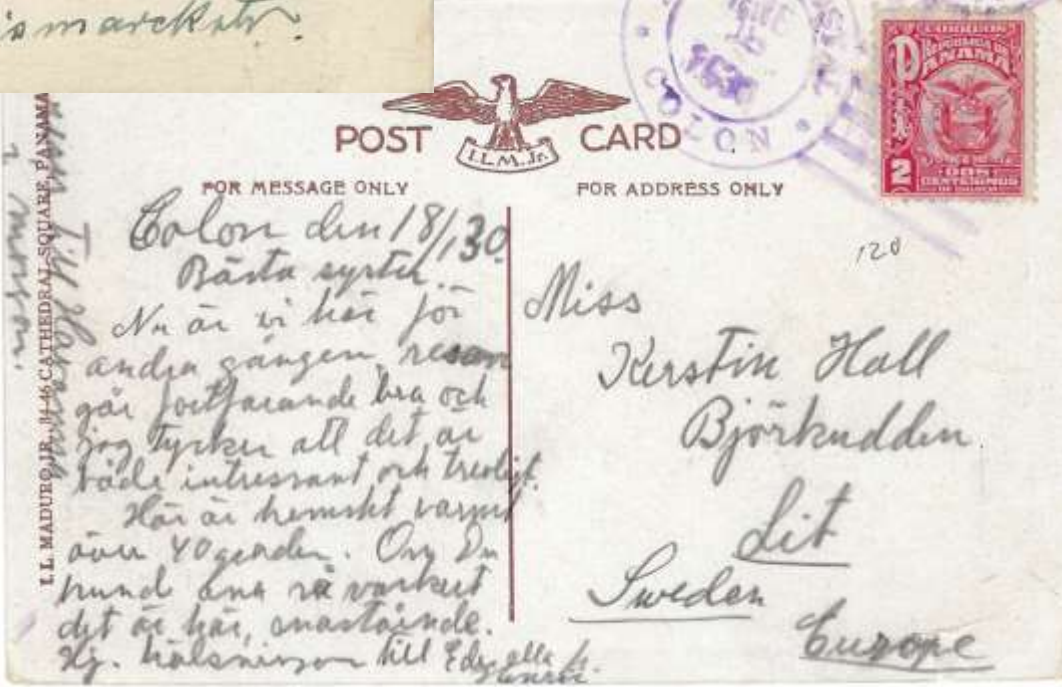 ismarckstr.
POST CARD
I.L.M.Jr.
FOR MESSAGE ONLY
FOR ADDRESS ONLY
COLON
CORREOS
REPUBLICA DE
PANAMA
2
DOS
CENTESIMOS
120
Colon den 18/1 30.
Bästa syster.
Nu är vi här för
andra gången, resan
går fortfarande bra och
jag tycker att det är
både intressant och trevligt.
Här är hemskt varmt
över 40 grader. Om Du
kund ana så vackert
det är här, enastående.
Hj. hälsningar till Eder alla
Miss
Kerstin Hall
Björkudden
Lit
Sweden
Europe
I.L. MADURO JR., CATHEDRAL SQUARE, PANAMA
Till